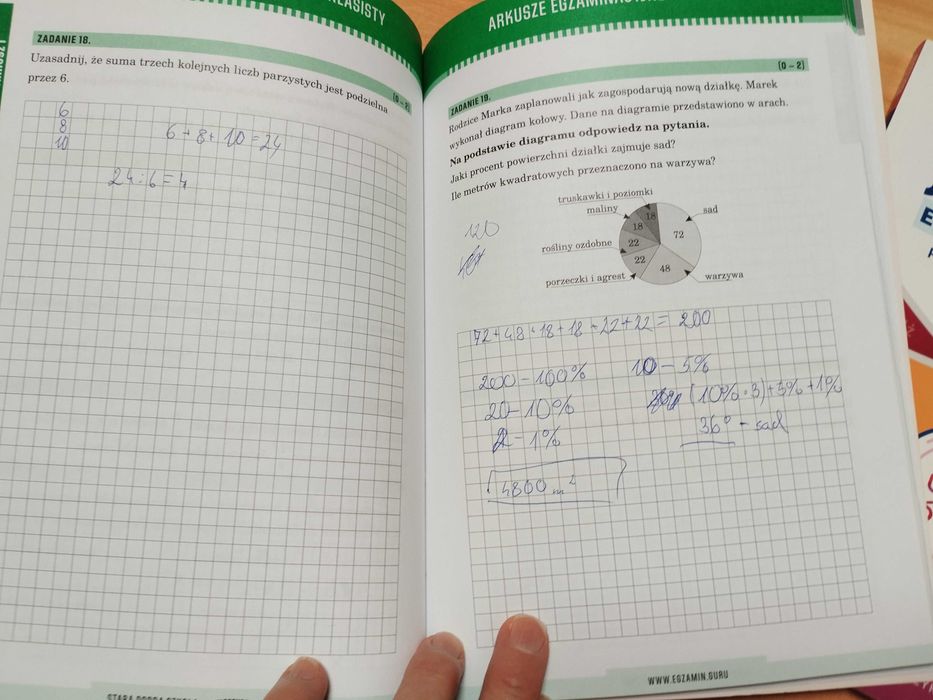 LASISTY
ZADANIE 18.
(0 – 2)
Uzasadnij, że suma trzech kolejnych liczb parzystych jest podzielna
przez 6.
6
8
10
6 + 8 + 10 = 24
24 : 6 = 4
ARKUSZE EGZAMINACYJNE
ZADANIE 19.
(0 – 2)
Rodzice Marka zaplanowali jak zagospodarują nową działkę. Marek
wykonał diagram kołowy. Dane na diagramie przedstawiono w arach.
Na podstawie diagramu odpowiedz na pytania.
Jaki procent powierzchni działki zajmuje sad?
Ile metrów kwadratowych przeznaczono na warzywa?
truskawki i poziomki
maliny
sad
rośliny ozdobne
porzeczki i agrest
warzywa
18
18
72
22
22
48
120
72 + 48 + 18 + 18 + 22 + 22 = 200
200 – 100%
10 – 5%
20 – 10%
(10% · 3) + 5% + 1%
2 – 1%
36° – sad
4800 m²
WWW.EGZAMIN.GURU